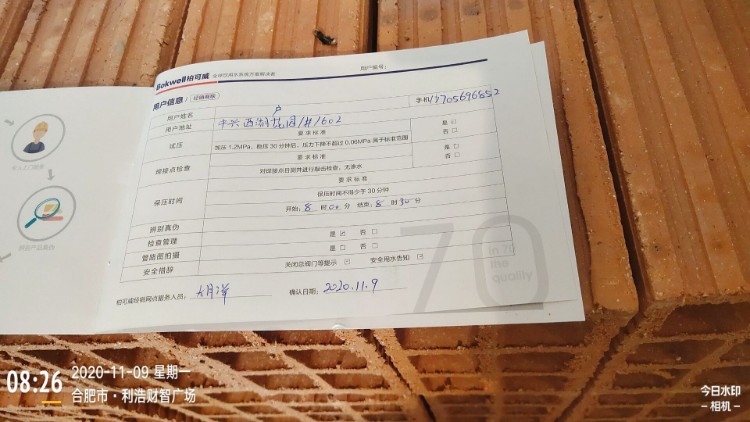 Bokwell柏可威
用户编号：
用户信息 / 经销商联
用户姓名
手机17705696852
用户地址
西湖花园1#1602
要求标准
试压
加压1.2MPa，稳压30分钟后，压力下降不超过0.06MPa 属于标准范围
是
否
要求标准
焊接点检查
对焊接点目测并进行敲击检查，无渗水
是
否
要求标准
保压时间
保压时间不得少于30分钟
开始：8 时00 分 结束：8 时30 分
辨别真伪
是 否
检查管理
是 否
管路图拍摄
安全措辞
关闭总阀门等提示 安全用水告知
柏可威经销网点服务人员：
确认日期：2020.11.9
70
in 70
quality
08:26
2020-11-09 星期一
合肥市·利浩财智广场
今日水印
-相机-